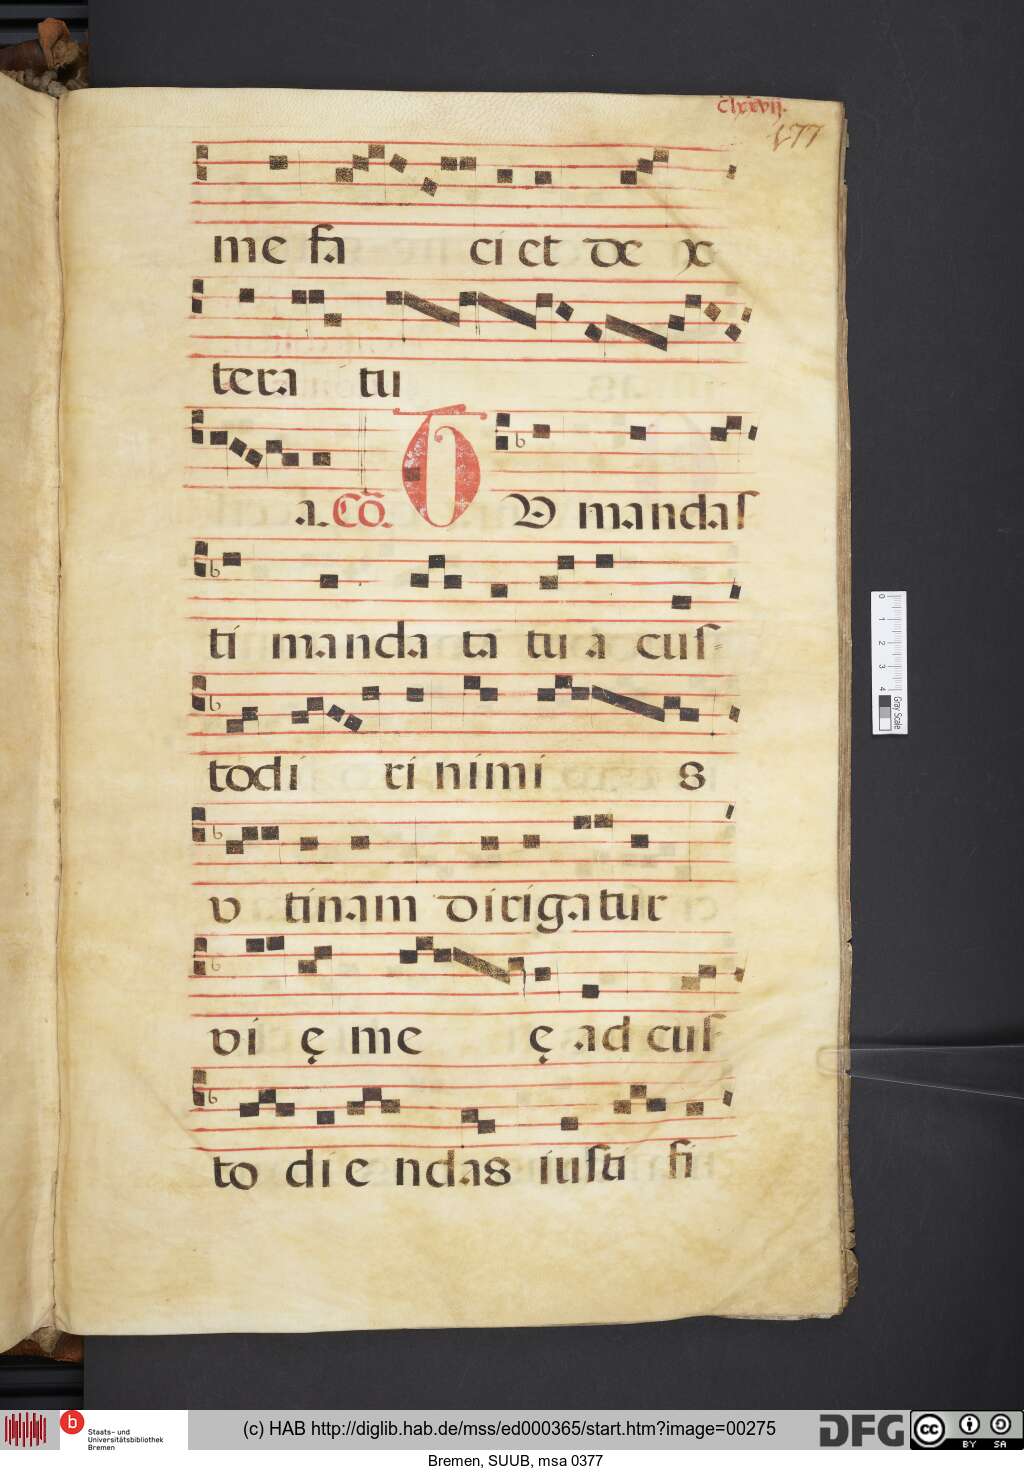 clxxvij.
177
me fa ci et de x
tera tu
a. Cõ. TU mandas
ti mandata tua cus
todiri nimis
utinam dirigatur
vię meę ad cus
todiendas iusti fi
0 1 2 3 4
Gray Scale
b Staats- und
Universitätsbibliothek
Bremen
(c) HAB http://diglib.hab.de/mss/ed000365/start.htm?image=00275
DFG
cc BY SA
Bremen, SUUB, msa 0377